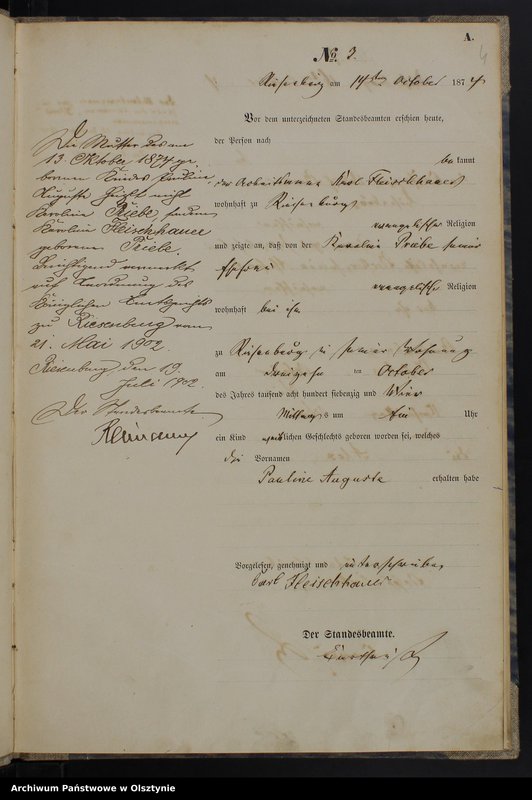 A.
4
No. 3.
Riesenburg am 14ten October 1874
Vor dem unterzeichneten Standesbeamten erschien heute,
der Person nach
be kannt
der Arbeitsmann Karl Fleischhauer
wohnhaft zu Riesenburg
evangelischer Religion
und zeigte an, daß von der Karoline Priebe seiner
Ehefrau
evangelischer Religion
wohnhaft bei ihm
zu Riesenburg in seiner Wohnung
am dreizehn ten October
des Jahres tausend acht hundert siebenzig und vier
Mittags um Uhr
ein Kind weiblichen Geschlechts geboren worden sei, welches
die Vornamen
Pauline Auguste erhalten habe
Vorgelesen, genehmigt und unterschrieben
Carl Fleischhauer
Der Standesbeamte.
Die Mutter des am
13. Oktober 1874 ge-
borenen Kindes Pauline
Auguste heißt nicht
Karoline Priebe, sondern
Karoline Fleischhauer
geborene Priebe.
Berichtigend vermerkt
auf Anordnung des
Königlichen Amtsgerichts
zu Riesenburg vom
21. Mai 1902.
Riesenburg den 19.
Juli 1902.
Der Standesbeamte
Archiwum Państwowe w Olsztynie